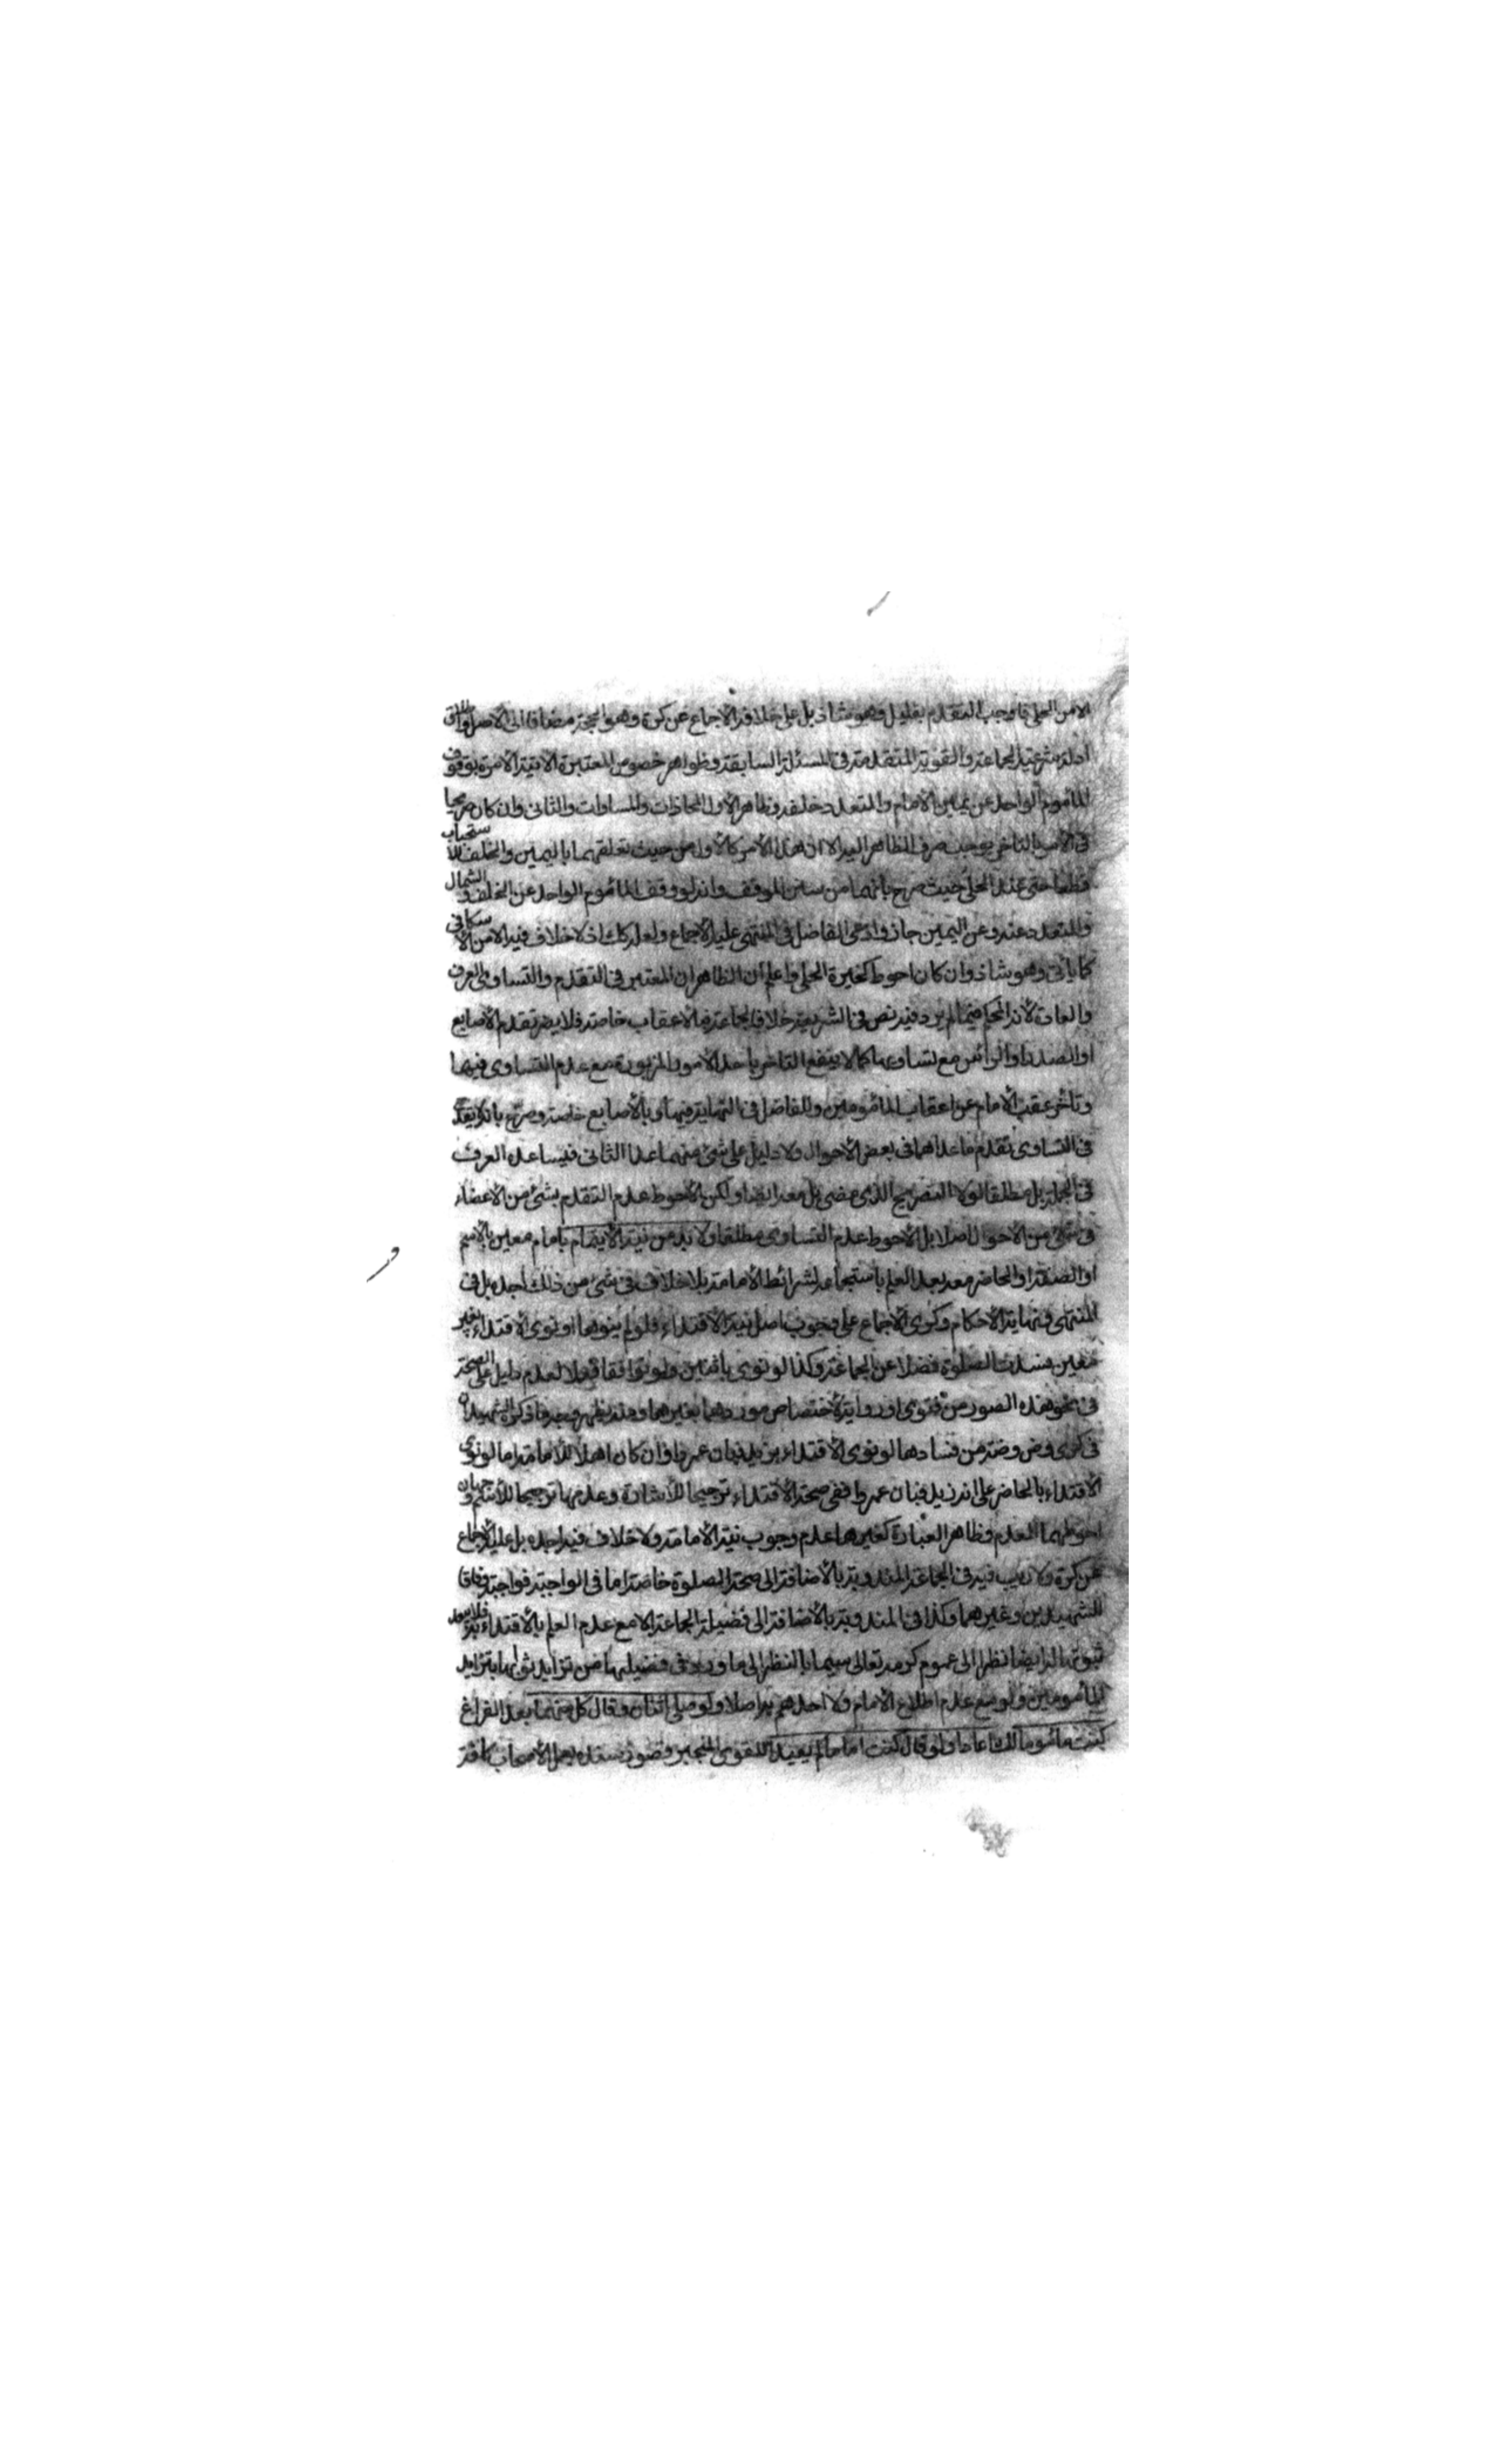 الا من الحلي فاوجب التقدم بقليل وهو شاذ بل على خلافه الاجماع عن كره وهو الحجة مضافا الى الاصل واطلاق
ادلة شرعية الجماعة والقوية المتقدمة في المسئلة السابقة وظواهر خصوص المعتبرة الاتية الامرة بوقوف
المأموم الواحد عن يمين الامام والمتعدد خلفه وظاهر الاول المحاذات والمساوات والثاني وان كان صريحا
في الامر بالتاخر يوجب صرف الظاهر اليه الا ان هذا الأمر كالأول من حيث تعلقهما باليمين والخلف للاستحباب
قطعا حتى عند الحلي حيث صرح بانهما من سنن الموقف وانه لو وقف المأموم الواحد عن الخلف والشمال
والمتعدد عنه وعن اليمين جاز وادعى الفاضل في المنتهى عليه الاجماع ولعله كك اذ لا خلاف فيه الا من الاسكافي
كما ياتي وهو شاذ وان كان احوط كخيرة الحلي واعلم أن الظاهر ان المعتبر في التقدم والتساوي العرف
والعادة لانه المحكم فيما لم يرد فيه نص في الشريعة خلافا لجماعة فالاعقاب خاصة فلا يضر تقدم الأصابع
او الصدر او الرأس مع تساويها كما لا ينفع التاخر باحد الامور المزبورة مع عدم التساوي فيها
وتأخر عقب الامام عن اعقاب المأمومين وللفاضل في النهاية فيها وبالأصابع خاصة وصرح بانه لا يقدح
في التساوي تقدم ما عداهما في بعض الأحوال ولا دليل على شئ منهما عدا الثاني فيساعده العرف
في الجملة بل مطلقا لولا التصريح الذي مضى بل معه ايضا ولكن الأحوط عدم التقدم بشئ من الاعضاء
في شئ من الاحوال اصلا بل الأحوط عدم التساوي مطلقا ولا بد من نية الأيتمام بامام معين بالاسم
او الصفة او الحاضر معه بعد العلم باستجماعه لشرائط الأمامة بلا خلاف في شئ من ذلك اجده بل في
المنتهى ونهاية الاحكام وكرى الأجماع على وجوب اصل نية الأقتداء فلو لم ينوها او نوى الأقتداء بغير
معين فسدت الصلوة فضلا عن الجماعة وكذا لو نوى باثنين ولو توافقا فعلا لعدم دليل على الصحة
في نحو هذه الصور من فتوى او رواية لأختصاص موردهما بغيرها ومنه يظهر وجه ما ذكره الشهيدان
في كرى وض وضة من فسادها لو نوى الاقتداء بزيد فبان عمروا وان كان اهلا للأمامة اما لو نوى
الأقتداء بالحاضر على انه زيد فبان عمروا ففي صحة الأقتداء ترجيحا للأشارة وعدمها ترجيحا للأسم وجهان
احوطهما العدم وظاهر العبارة كغيرها عدم وجوب نية الأمامة ولا خلاف فيه اجده بل عليه الأجماع
عن كره ولا ريب فيه في الجماعة المندوبة بالأضافة الى صحة الصلوة خاصة اما في الواجبة فواجبة وفاقا
للشهيدين وغيرهما وكذا في المندوبة بالأضافة الى فضيلة الجماعة الا مع عدم العلم بالأقتداء به فلا يبعد
ثبوتها له ايضا نظرا الى عموم كرمه تعالى سيما بالنظر الى ما ورد في فضيلتها من تزايد ثوابها بتزايد
المأمومين ولو مع عدم اطلاع الامام ولا احدهم به اصلا ولو صلى اثنان وقال كل منهما بعد الفراغ
كنت مأموما لك اعادا ولو قال كنت اماما لم يعيدا للقوي المنجبر قصور سنده بعمل الأصحاب كافة